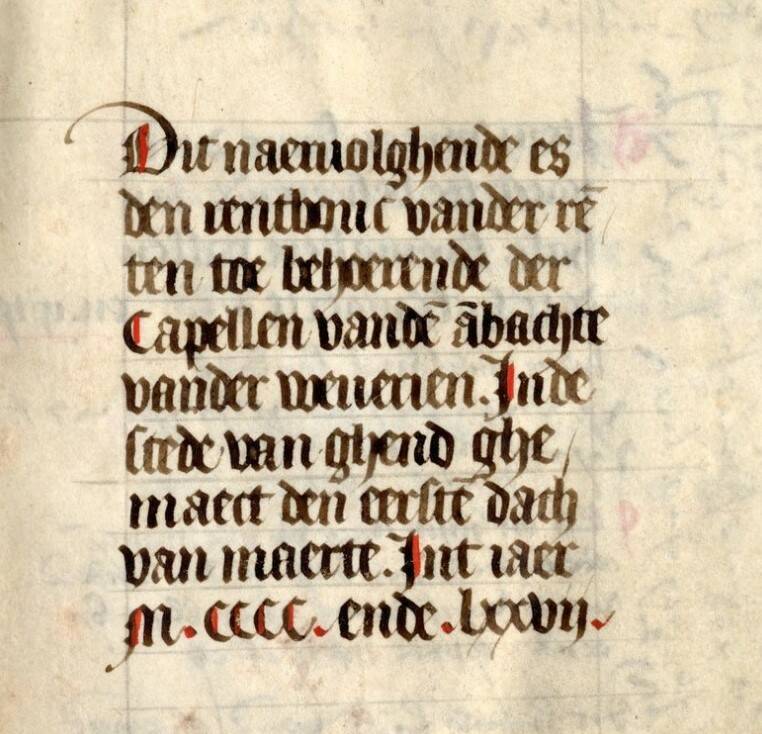 Dit naeruolghende es
den rentbouc vander rē
ten toe behoerende der
Capellen vandē ābachte
vander weuerien. Inde
stede van ghend ghe/
maect den eerstē dach
van maerte. Int iaer
M. CCCC. ende. lxxvij.